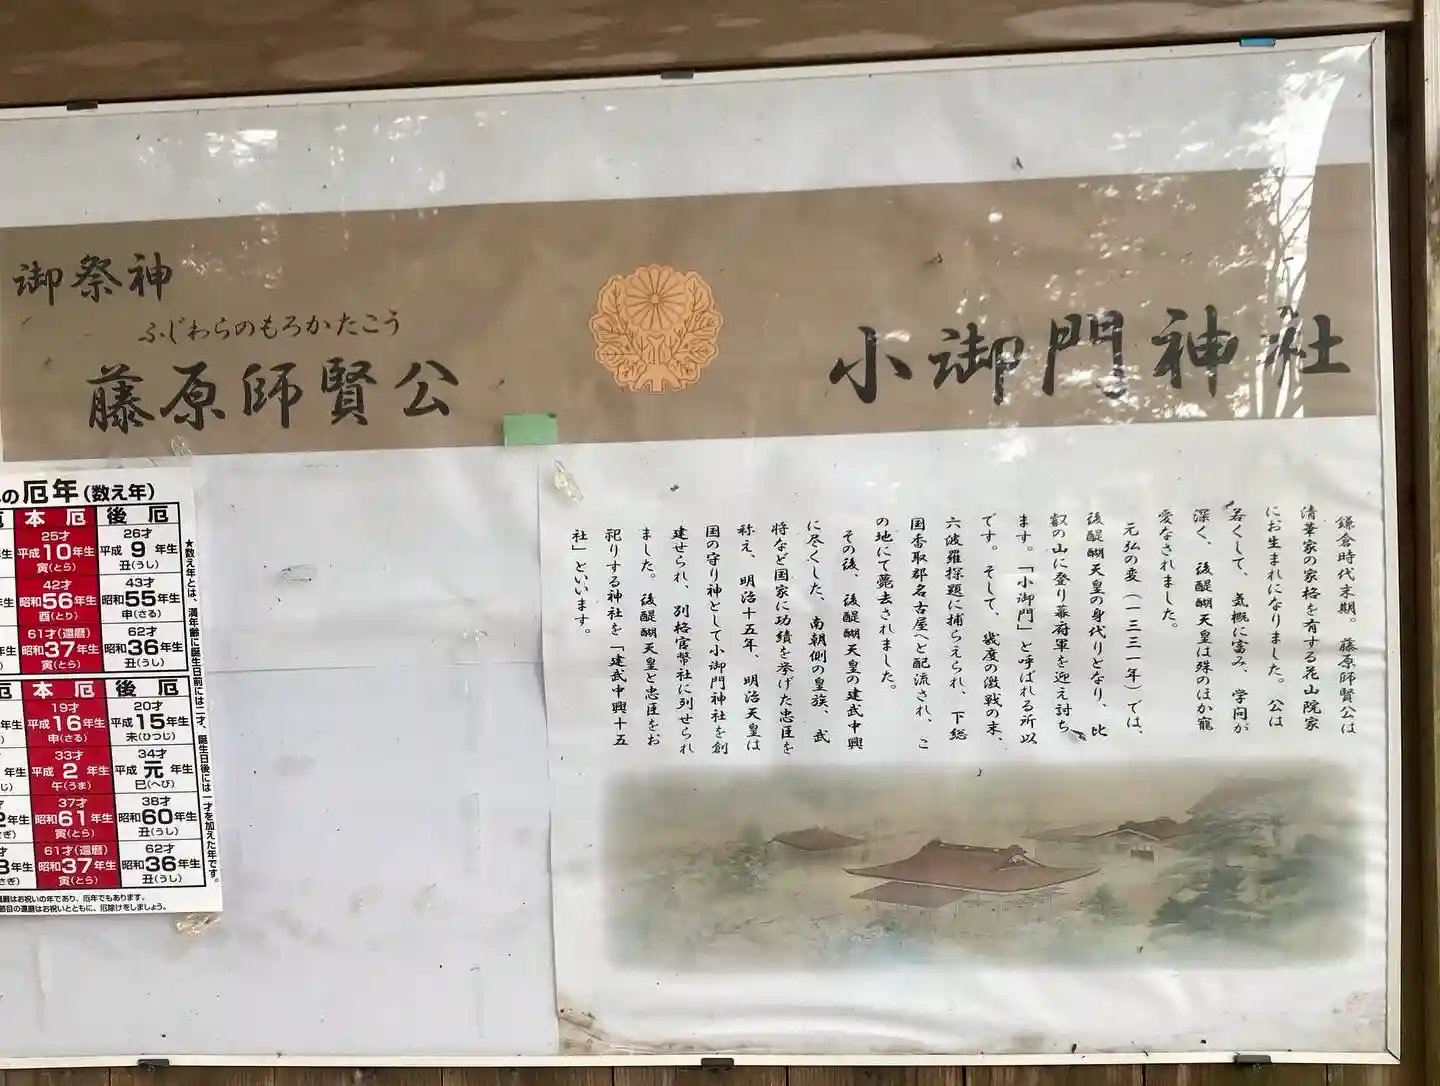 小御門神社
御祭神
ふじわらのもろかたこう
藤原師賢公
鎌倉時代末期。藤原師賢公は
清華家の家格を有する花山院家
にお生まれになりました。公は
若くして、気概に富み、学問が
深く、後醍醐天皇は殊のほか寵
愛なされました。
元弘の変(一三三一年)では、
後醍醐天皇の身代りとなり、比
叡の山に登り幕府軍を迎え討ち
ます。「小御門」と呼ばれる所以
です。そして、幾度の激戦の末、
六波羅探題に捕らえられ、下総
国香取郡名古屋へと配流され、こ
の地にて薨去されました。
その後、後醍醐天皇の建武中興
に尽くした、南朝側の皇族、武
将など国家に功績を挙げた忠臣を
称え、明治十五年、明治天皇は
国の守り神として小御門神社を創
建せられ、別格官幣社に列せられ
ました。後醍醐天皇と忠臣をお
祀りする神社を「建武中興十五
社」といいます。
の厄年(数え年)
本厄 後厄
25才 26才
年生 平成10年生 平成9年生
寅(とら) 丑(うし)
42才 43才
年生 昭和56年生 昭和55年生
酉(とり) 申(さる)
61才(還暦) 62才
年生 昭和37年生 昭和36年生
寅(とら) 丑(うし)
厄 本厄 後厄
19才 20才
年生 平成16年生 平成15年生
申(さる) 未(ひつじ)
33才 34才
年生 平成2年生 平成元年生
午(うま) 巳(へび)
37才 38才
2年生 昭和61年生 昭和60年生
寅(とら) 丑(うし)
61才(還暦) 62才
3年生 昭和37年生 昭和36年生
寅(とら) 丑(うし)
★数え年とは、満年齢に誕生日前には二才、誕生日後には一才を加えた年です。
還暦はお祝いの年であり、厄年でもあります。
節目の還暦はお祝いとともに、厄除けをしましょう。